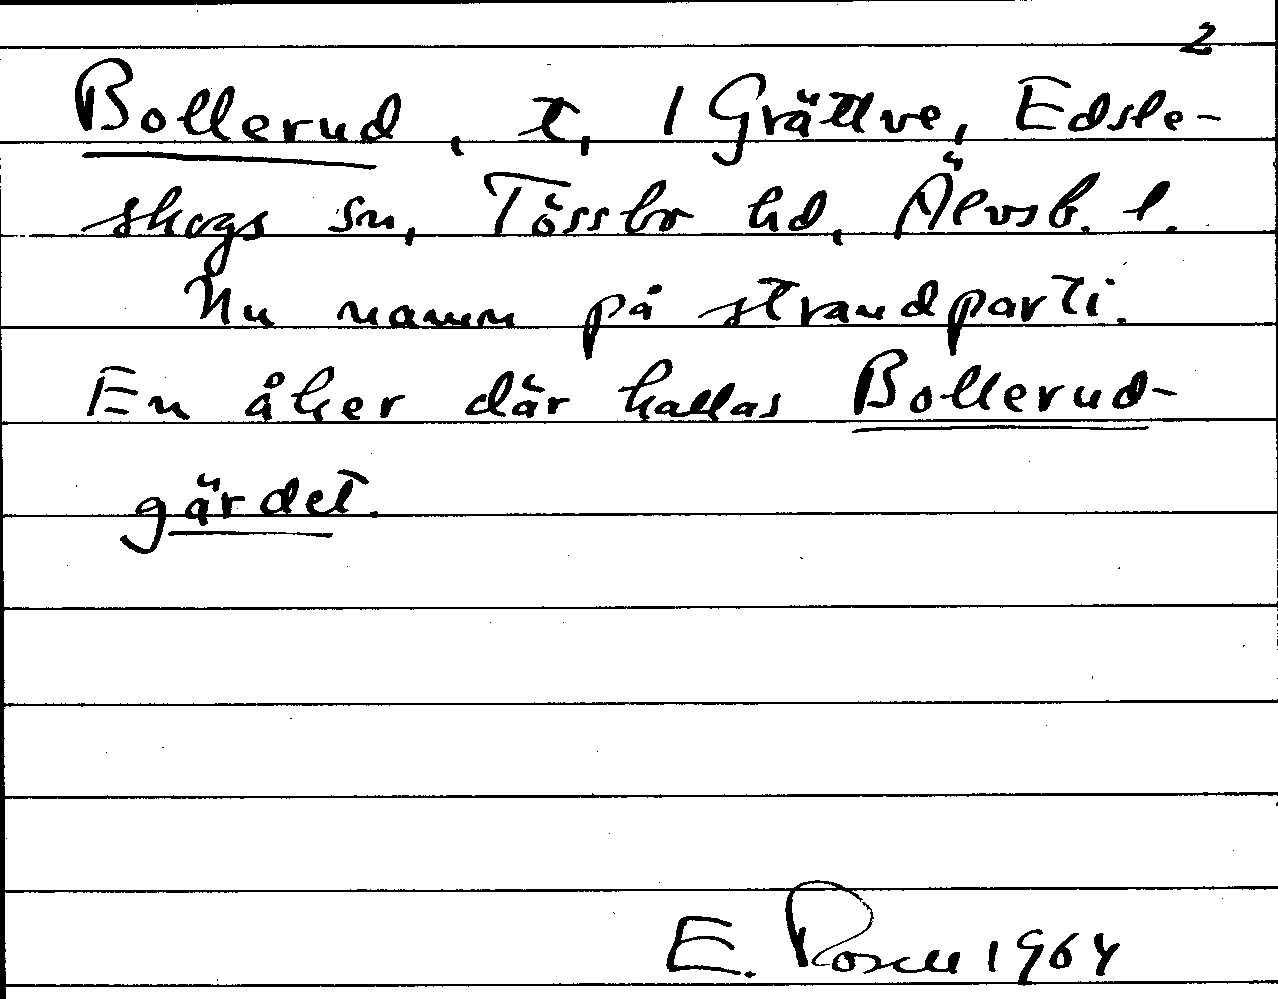 2
Bollerud, t, 1 Grättve, Edsle-
skogs sn, Tössbo hd, Älvsb. l.
Nu namn på strandparti.
En åker där kallas Bollerud-
gärdet.
E. Rosell 1964